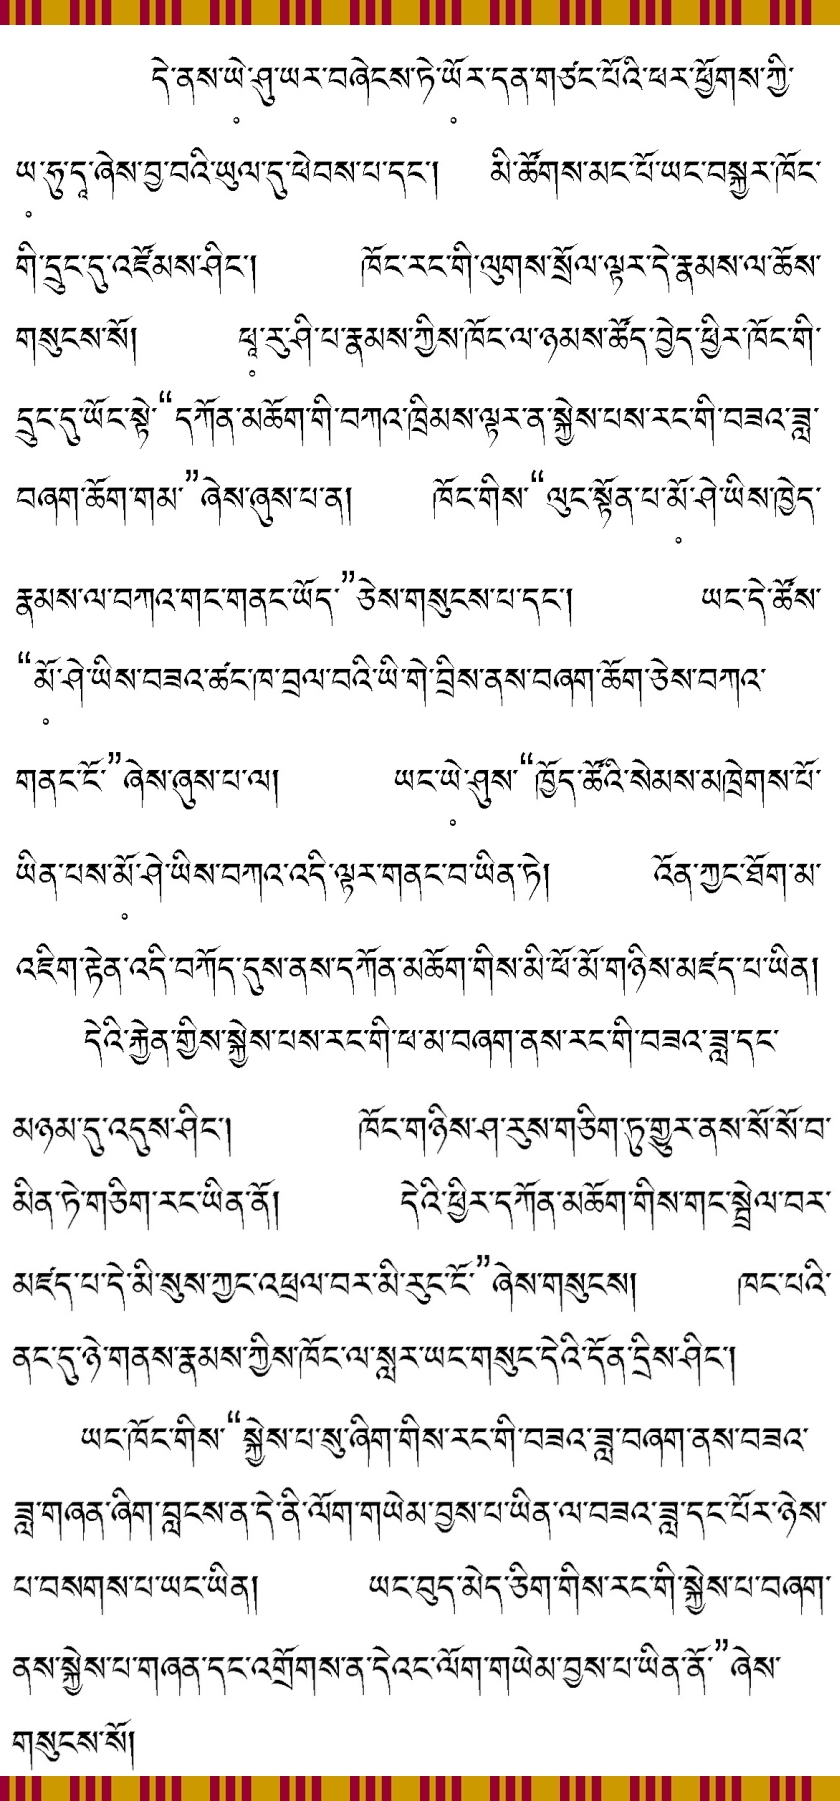 དེ་ནས་ཡེ༷་ཤུ་ཡར་བཞེངས་ཏེ་ཡོ༷ར་དན་གཙང་པོའི་ཕར་ཕྱོགས་ཀྱི་
ཡ༷་ཧུ་དཱ་ཞེས་བྱ་བའི་ཡུལ་དུ་ཕེབས་པ་དང་། མི་ཚོགས་མང་པོ་ཡང་བསྐྱར་ཁོང་
གི་དྲུང་དུ་འཛོམས་ཤིང་། ཁོང་རང་གི་ལུགས་སྲོལ་ལྟར་དེ་རྣམས་ལ་ཆོས་
གསུངས་སོ། ཕཱ༷་རུ་ཤི་པ་རྣམས་ཀྱིས་ཁོང་ལ་ཉམས་ཚོད་བྱེད་ཕྱིར་ཁོང་གི་
དྲུང་དུ་ཡོང་སྟེ་“དཀོན་མཆོག་གི་བཀའ་ཁྲིམས་ལྟར་ན་སྐྱེས་པས་རང་གི་བཟའ་ཟླ་
བཞག་ཆོག་གམ་”ཞེས་ཞུས་པ་ན། ཁོང་གིས་“ལུང་སྟོན་པ་མོ༷་ཤེ་ཡིས་ཁྱེད་
རྣམས་ལ་བཀའ་གང་གནང་ཡོད་”ཅེས་གསུངས་པ་དང་། ཡང་དེ་ཚོས་
“མོ༷་ཤེ་ཡིས་བཟའ་ཚང་ཁ་བྲལ་བའི་ཡི་གེ་བྲིས་ནས་བཞག་ཆོག་ཅེས་བཀའ་
གནང་ངོ་”ཞེས་ཞུས་པ་ལ། ཡང་ཡེ༷་ཤུས་“ཁྱོད་ཚོའི་སེམས་མཁྲེགས་པོ་
ཡིན་པས་མོ༷་ཤེ་ཡིས་བཀའ་འདི་ལྟར་གནང་བ་ཡིན་ཏེ། འོན་ཀྱང་ཐོག་མ་
འཇིག་རྟེན་འདི་བཀོད་དུས་ནས་དཀོན་མཆོག་གིས་མི་ཕོ་མོ་གཉིས་མཛད་པ་ཡིན།
དེའི་རྐྱེན་གྱིས་སྐྱེས་པས་རང་གི་ཕ་མ་བཞག་ནས་རང་གི་བཟའ་ཟླ་དང་
མཉམ་དུ་འདུས་ཤིང་། ཁོང་གཉིས་ཤ་རུས་གཅིག་ཏུ་གྱུར་ནས་སོ་སོ་བ་
མིན་ཏེ་གཅིག་རང་ཡིན་ནོ། དེའི་ཕྱིར་དཀོན་མཆོག་གིས་གང་སྦྲེལ་བར་
མཛད་པ་དེ་མི་སུས་ཀྱང་འཕྲལ་བར་མི་རུང་ངོ་”ཞེས་གསུངས། ཁང་པའི་
ནང་དུ་ཉེ་གནས་རྣམས་ཀྱིས་ཁོང་ལ་སླར་ཡང་གསུང་དེའི་དོན་དྲིས་ཤིང་།
ཡང་ཁོང་གིས་“སྐྱེས་པ་སུ་ཞིག་གིས་རང་གི་བཟའ་ཟླ་བཞག་ནས་བཟའ་
ཟླ་གཞན་ཞིག་བླངས་ན་དེ་ནི་ལོག་གཡེམ་བྱས་པ་ཡིན་ལ་བཟའ་ཟླ་དང་པོར་ཉེས་
པ་བསགས་པ་ཡང་ཡིན། ཡང་བུད་མེད་ཅིག་གིས་རང་གི་སྐྱེས་པ་བཞག་
ནས་སྐྱེས་པ་གཞན་དང་འགྲོགས་ན་དེའང་ལོག་གཡེམ་བྱས་པ་ཡིན་ནོ་”ཞེས་
གསུངས་སོ།